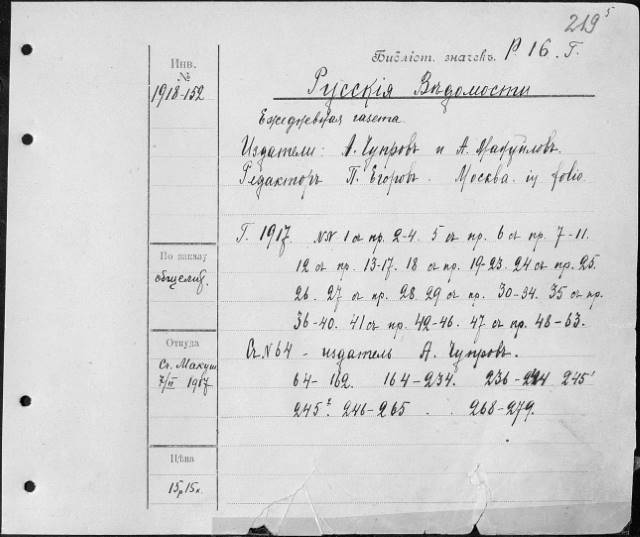 219 5
Библіот. значекъ. Р 16. Г.
Инв.
№
1918-152
Русскія Вѣдомости
Ежедневная газета
Издатели: А. Чупровъ и А. Мануйловъ.
Редакторъ П. Егоровъ. Москва. in folio
Г. 1917. №№ 1 съ пр. 2-4. 5 съ пр. 6 съ пр. 7-11.
12 съ пр. 13-17. 18 съ пр. 19-23. 24 съ пр. 25.
26. 27 съ пр. 28. 29 съ пр. 30-34. 35 съ пр.
36-40. 41 съ пр. 42-46. 47 съ пр. 48-63.
Съ № 64 - издатель А. Чупровъ.
64-162. 164-234. 236- 245¹
245². 246-265 . . 268-279.
По заказу
Откуда
Съ. Макуш
7/II 1917
Цѣна
15р. 15к.